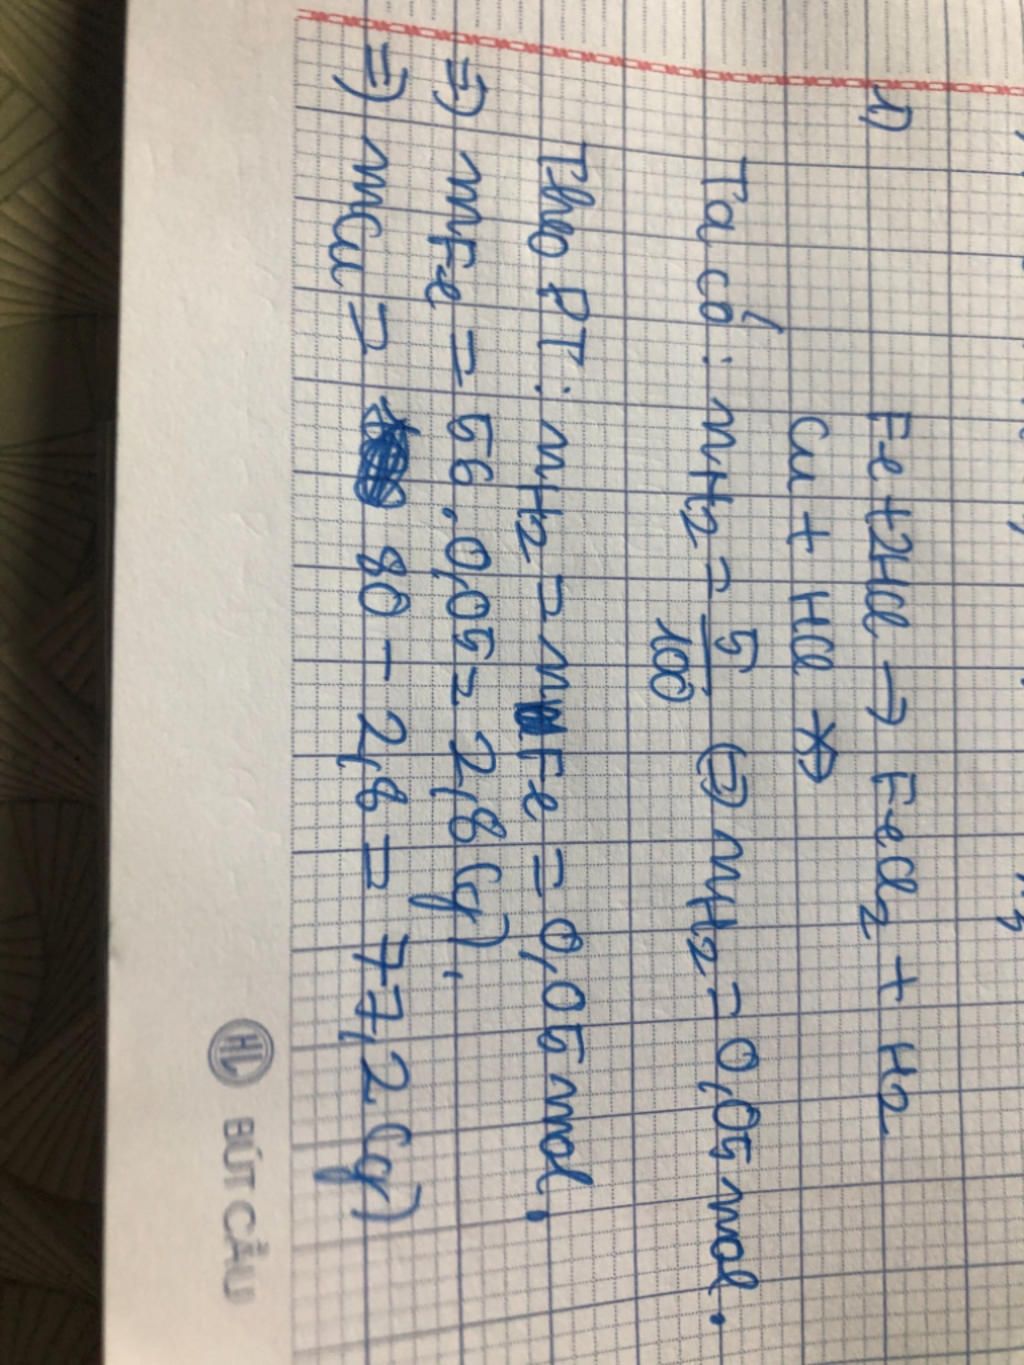 1) Fe + 2HCl → FeCl2 + H2
Cu + HCl
Ta có: nH2 = 5/100 ⇔ nH2 = 0,05 mol.
Theo PT: nH2 = nFe = 0,05 mol.
⇒ mFe = 56.0,05 = 2,8 (g).
⇒ mCu = 80 - 2,8 = 77,2 (g)
HL BÚT CÂU